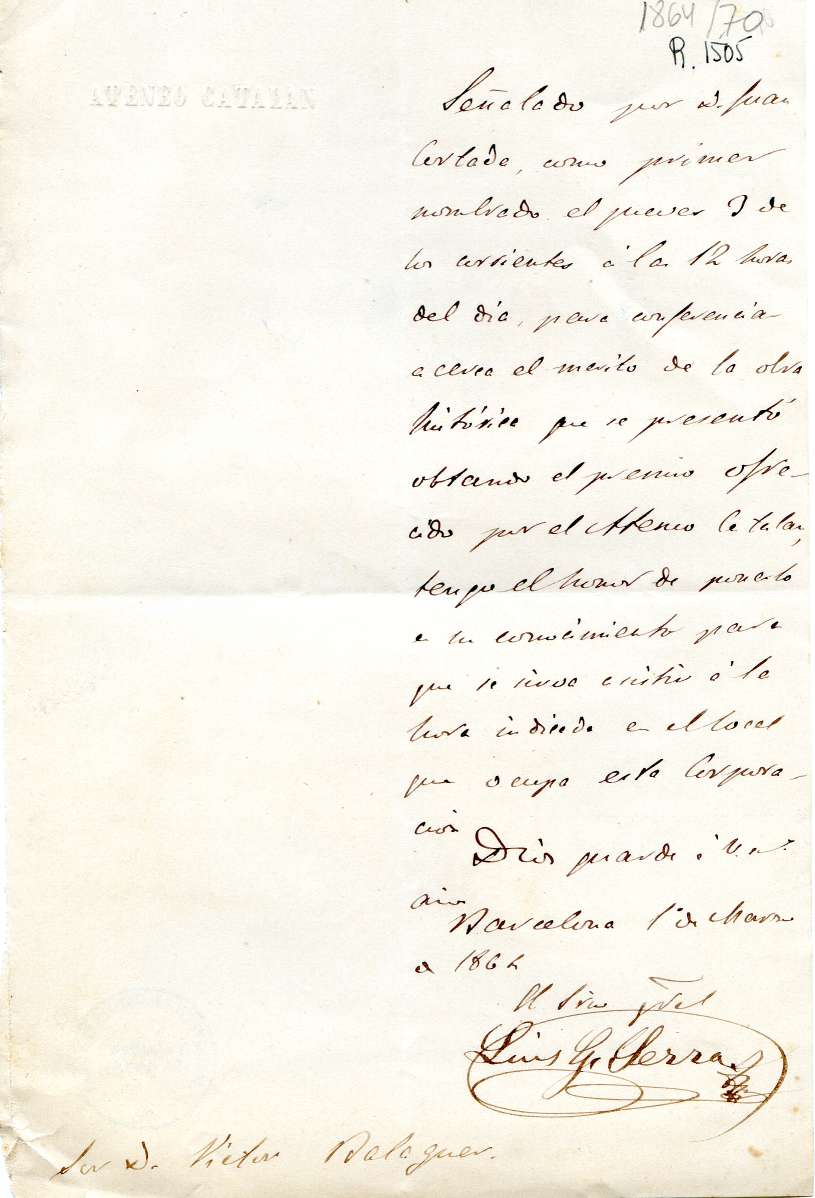 1864/70
R. 1505
ATENEO CATALÁN
Señalado por D. Juan
Cortada, como primer
nombrado el jueves 3 de
los corrientes á las 12 horas
del dia, para conferenciar
acerca el merito de la obra
histórica que se presentó
obtando el premio ofre-
cido por el Ateneo Catalan,
tengo el honor de ponerlo
a su conocimiento para
que se sirva asistir á la
hora indicada en el local
que ocupa esta Corpora-
ción
Dios guarde á V. m.s
años
Barcelona 1º de Marzo
de 1864
El Srio gral
Luis G. Serra
Sor D. Victor Balaguer.